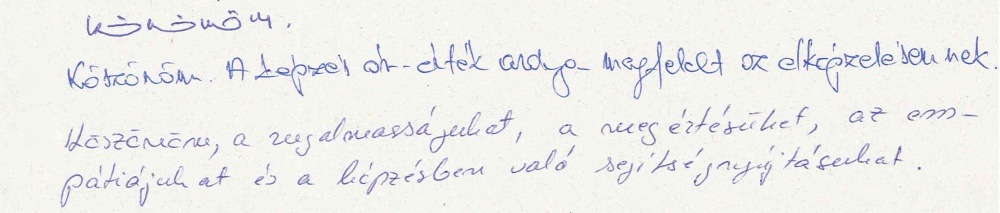 Köszönöm.
Köszönöm. A képzés ár-érték aránya megfelelt az elképzelésemnek.
Köszönöm, a rugalmasságukat, a megértésüket, az em-
pátiájukat és a képzésben való segítségnyújtásukat.